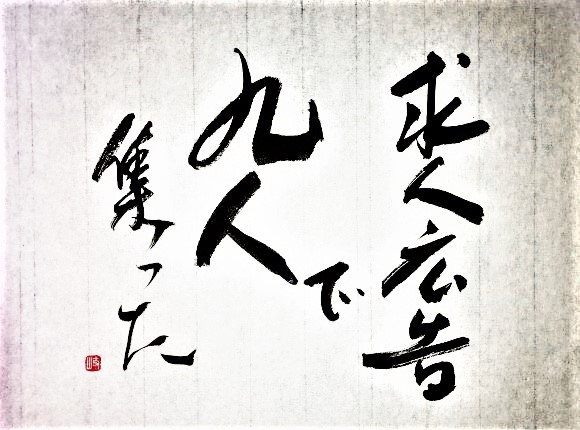 求人広告で
九人
集った